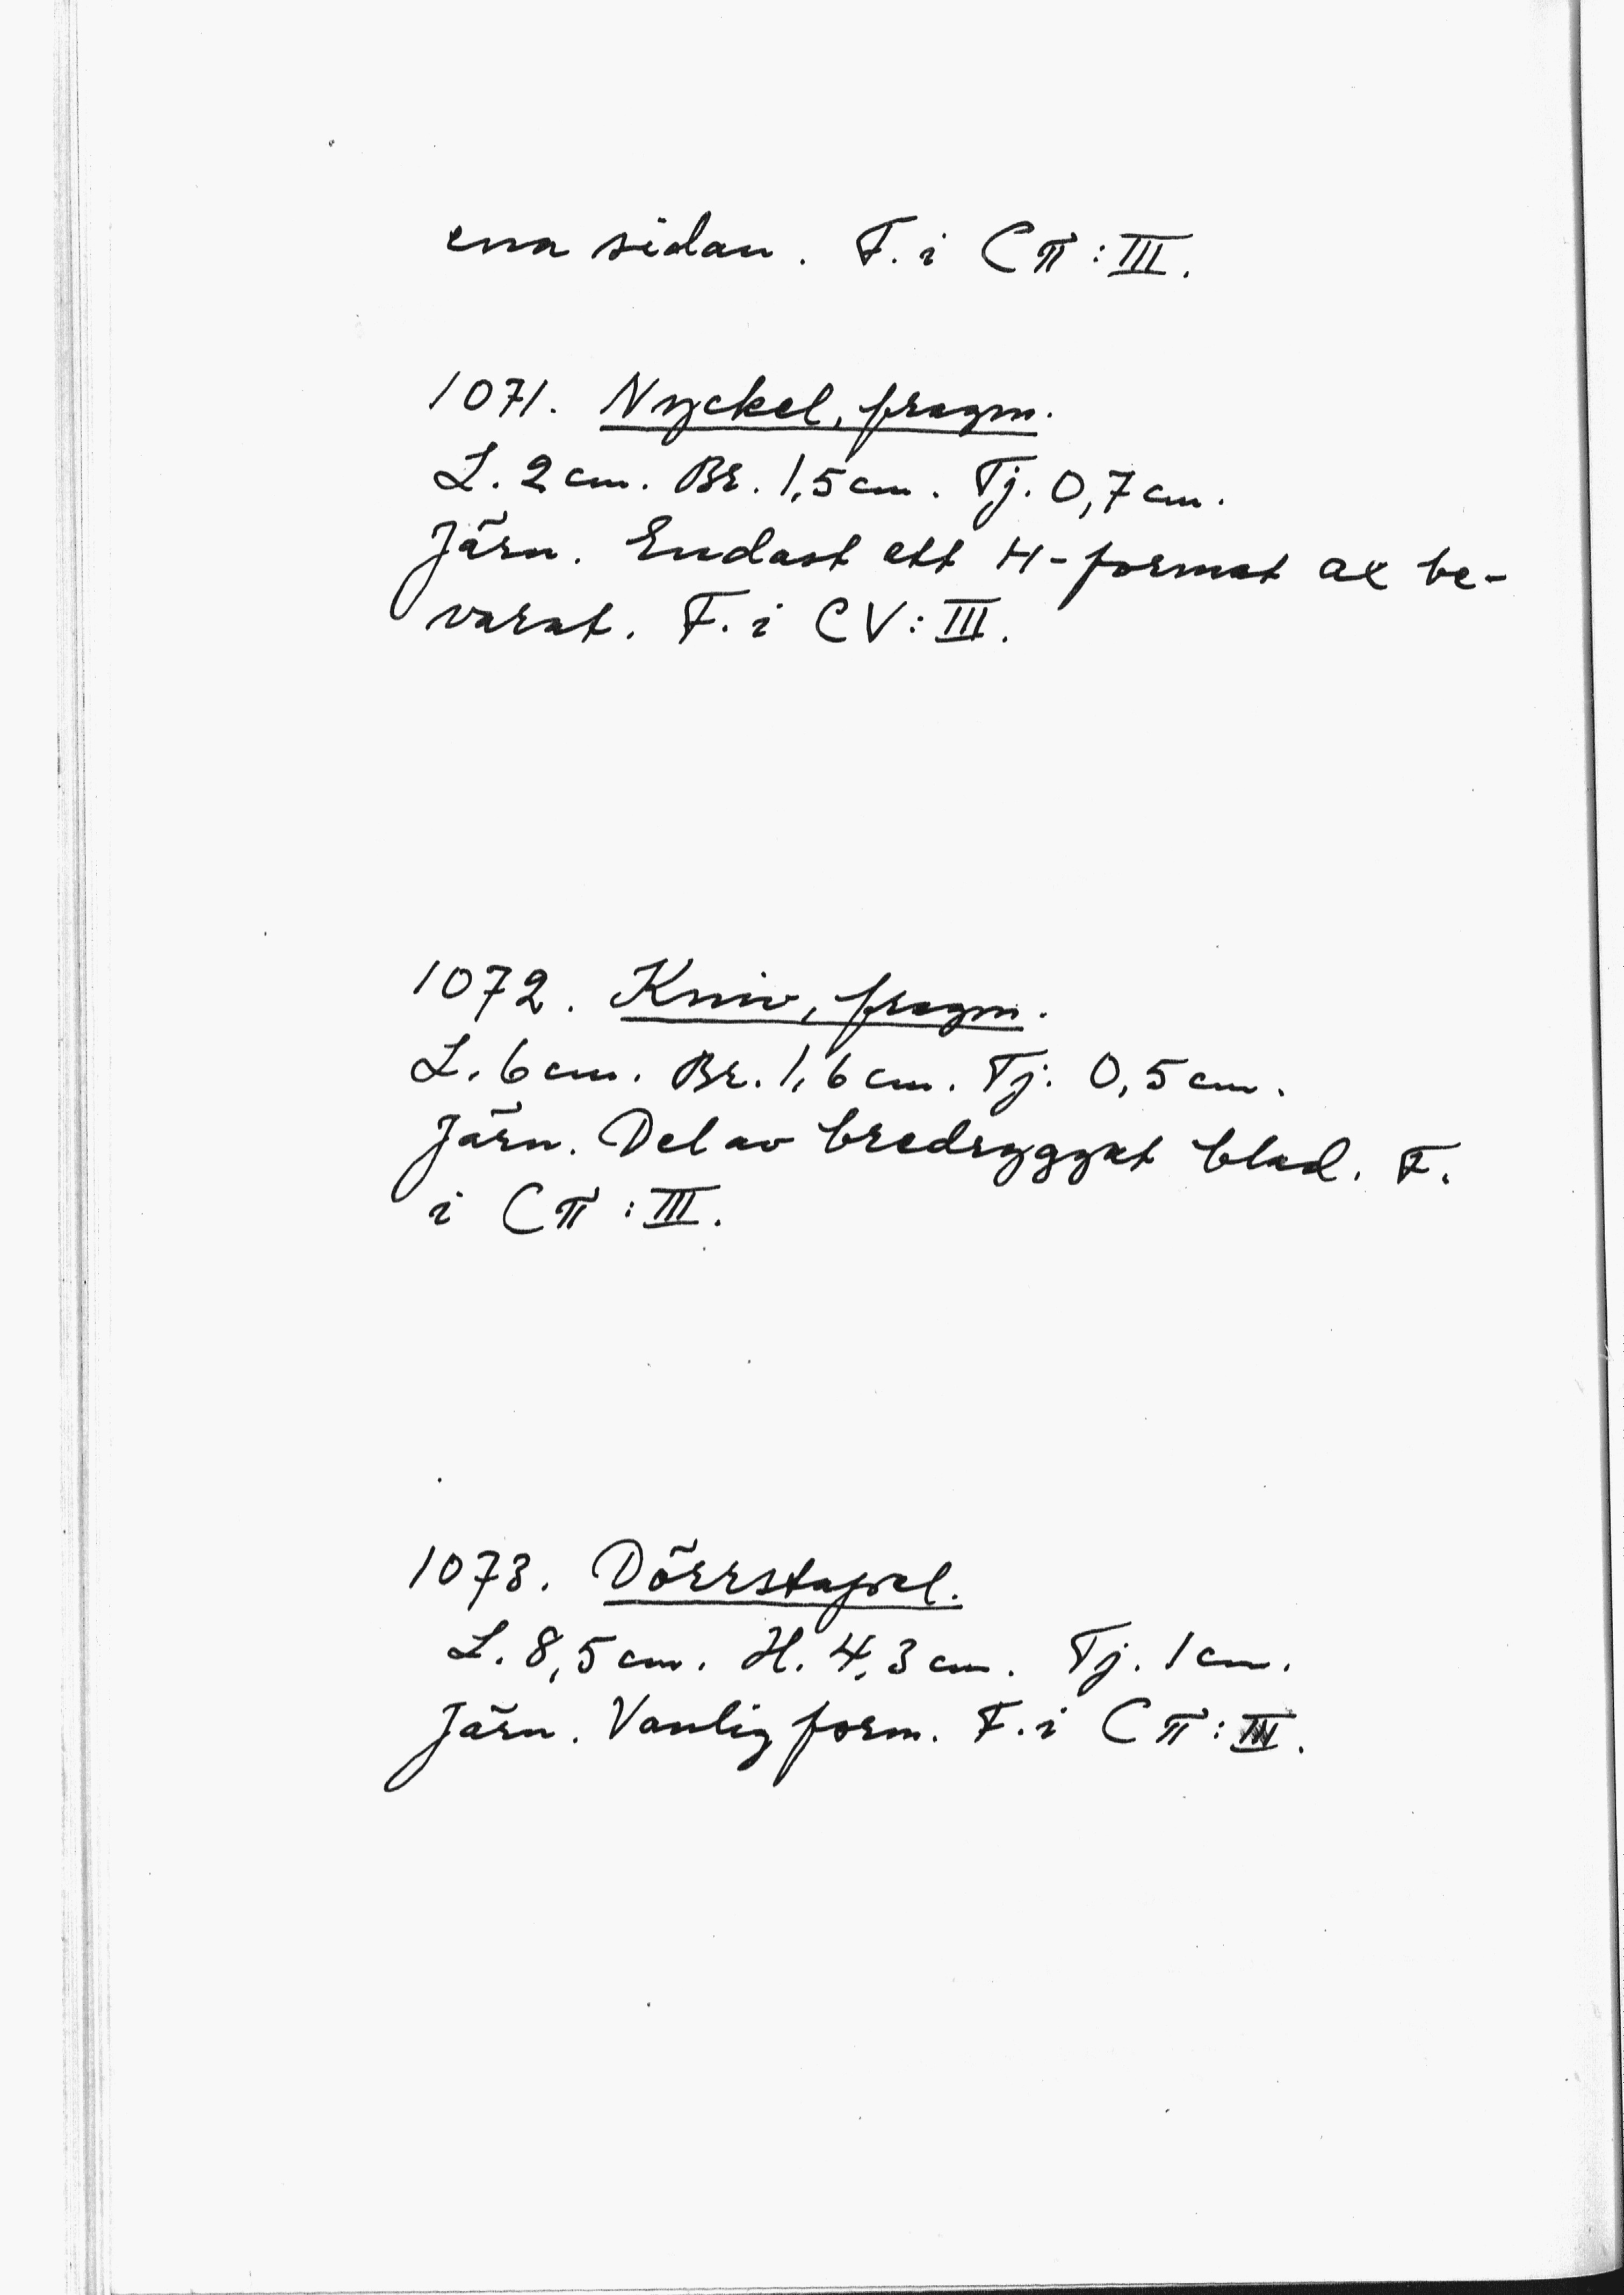 ena sidan. F. i Cπ:III.
1071. Nyckel, fragm.
L. 2 cm. Br. 1,5 cm. Tj. 0,7 cm.
Järn. Endast ett H-format ax be-
varat. F. i CV:III.
1072. Kniv, fragm.
L. 6 cm. Br. 1,6 cm. Tj. 0,5 cm.
Järn. Del av bredryggat blad. F.
i Cπ:III.
1073. Dörrstapel.
L. 8,5 cm. H. 4,3 cm. Tj. 1 cm.
Järn. Vanlig form. F. i Cπ:III.